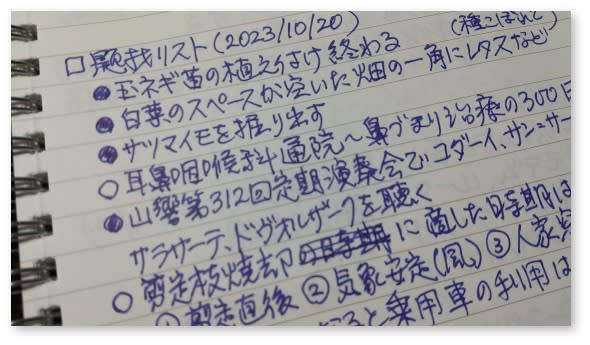 (種こぼれで)
□ 懸案リスト(2023/10/20)
● 玉ネギ苗の植え付け終わる
● 白菜のスペースが空いた畑の一角にレタスなど
● サツマイモを掘り出す
○ 耳鼻咽喉科通院〜鼻づまり治療の300日
● 山響第312回定期演奏会でコダーイ、サン=サー
サラサーテ、ドヴォルザークを聴く
○ 剪定枝焼却に適した時期は
① 剪定直後 ② 気象安定(風) ③ 人家
と乗用車の利用は